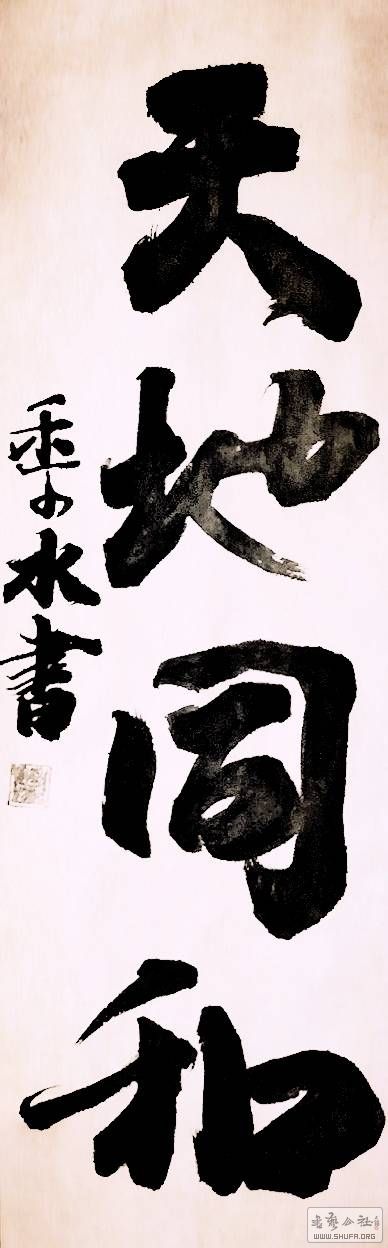 天地同和
水書
書藝公社
WWW.SHUFA.ORG